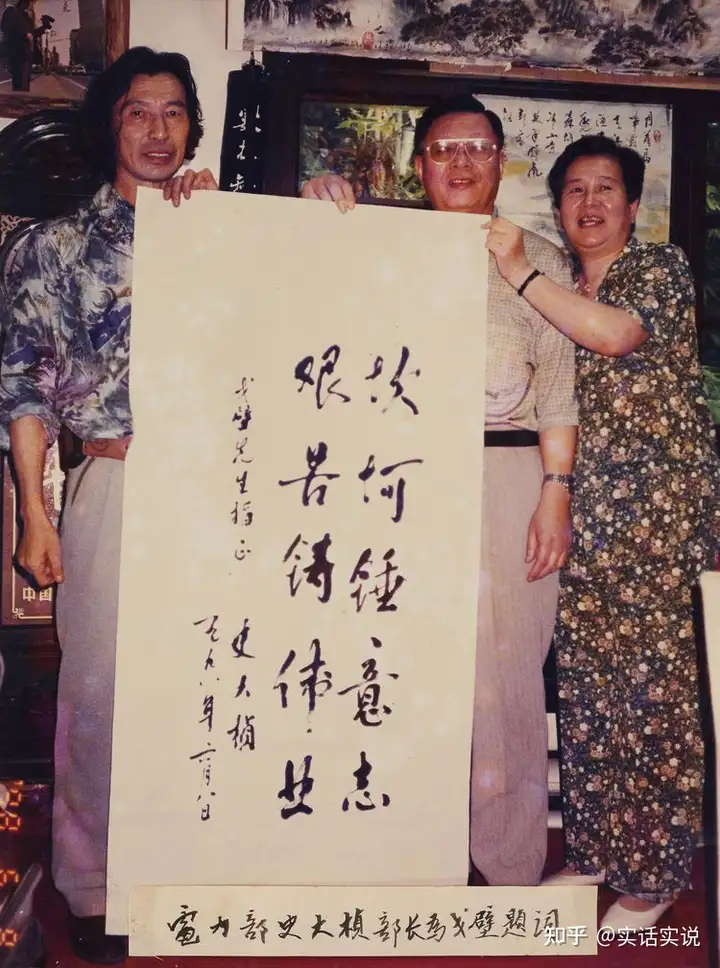 坎坷锤意志
艰苦铸伟业
戈壁先生指正
史大桢
一九九八年六月八日
電力部史大桢部长为戈壁题词
中国
知乎 @实话实说